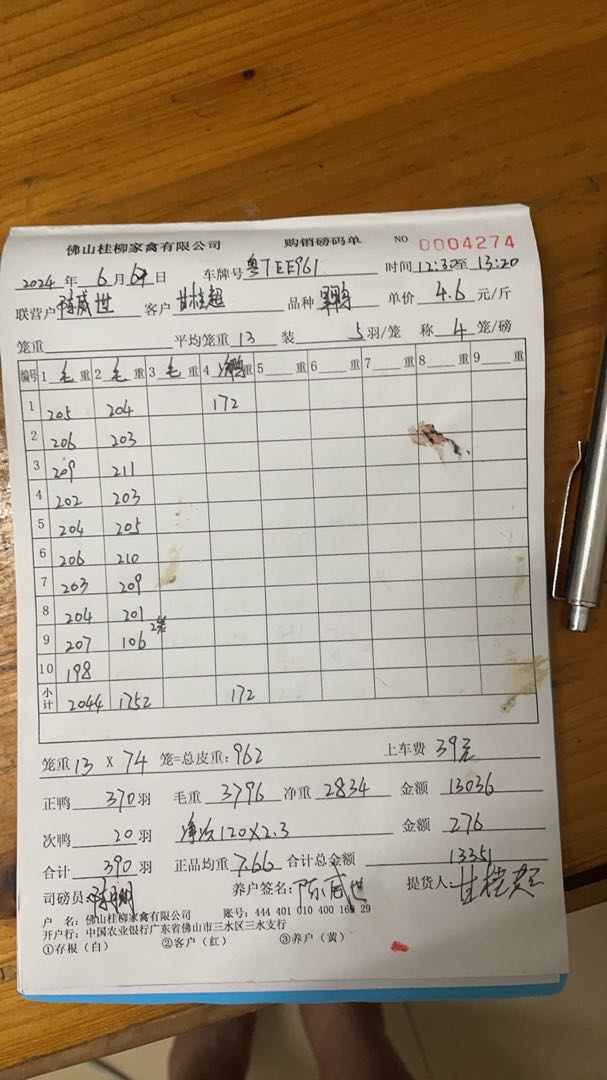 佛山桂柳家禽有限公司 购销磅码单 NO 0004274
2024 年 6 月 6 日 车牌号 粤TEE961 时间 12:30至 13:20
联营户 陈威世 客户 甘桂超 品种 单价 4.6 元/斤
笼重 平均笼重 13 装 5 羽/笼 称 4 笼/磅
编号 1 毛 重 2 毛 重 3 毛 重 4 重 5 重 6 重 7 重 8 重 9 重
1 205 204 172
2 206 203
3 209 211
4 202 203
5 204 205
6 206 210
7 203 209
8 204 201
9 207 106 2笼
10 198
小计 2044 1752 172
笼重 13 X 74 笼=总皮重: 962 上车费 39元
正鸭 370 羽 毛重 3796 净重 2834 金额 13036
次鸭 20 羽 120X2.3 金额 276
合计 390 羽 正品均重 7.66 合计总金额 13351
司磅员: 养户签名: 陈威世 提货人: 甘桂超
户 名: 佛山桂柳家禽有限公司 账号: 444 401 010 400 168 29
开户行: 中国农业银行广东省佛山市三水区三水支行
①存根（白） ②客户（红） ③养户（黄）